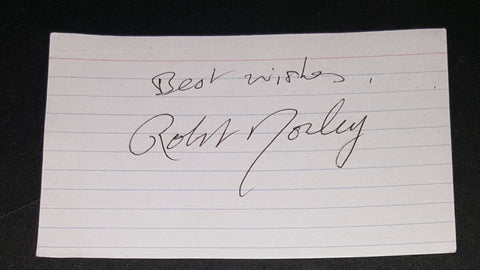 Best wishes,
Robt Morley